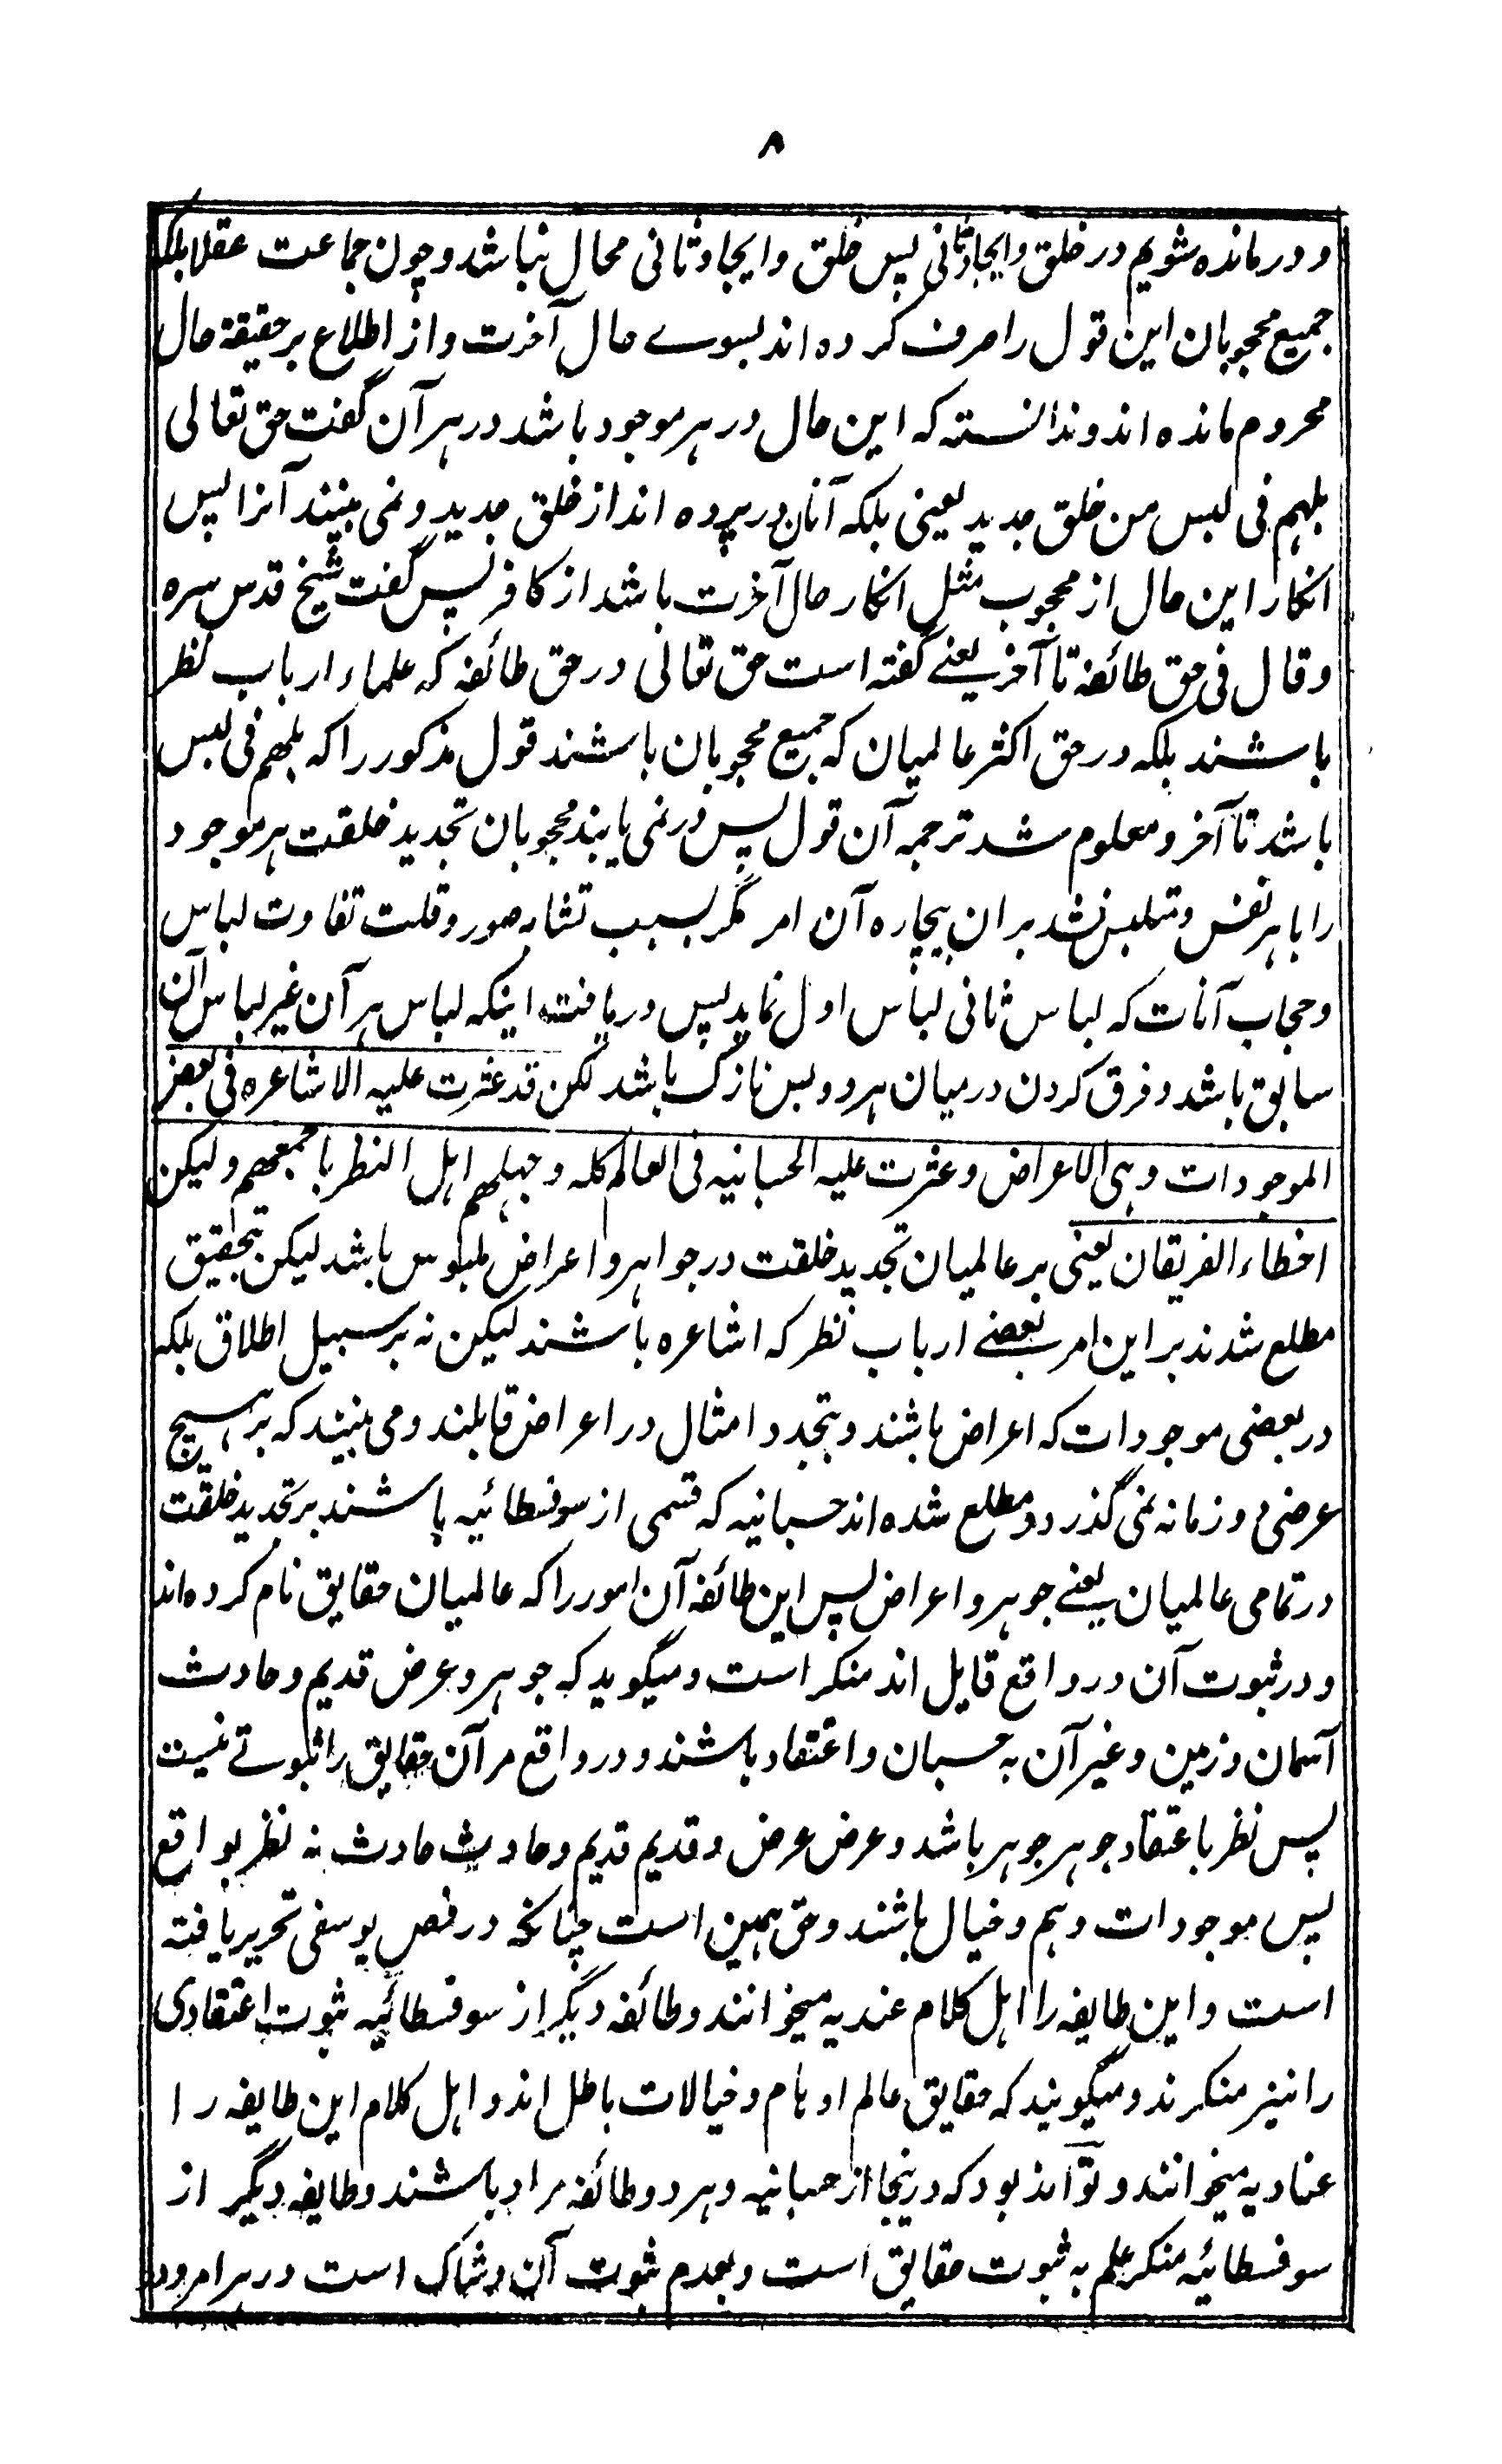 ۸
و درمانده شویم در خلق و ایجاد ثانی پس خلق و ایجاد ثانی محال نباشد و چون جماعت عقلا بلکه
جمیع محجوبان این قول را صرف کرده اند بسوے حال آخرت و از اطلاع بر حقیقة حال
محروم مانده اند و ندانسته که این حال در هر موجود باشد در هر آن گفت حق تعالی
بلهم فی لبس من خلق جدید یعنی بلکه آنان در پرده اند از خلق جدید و نمی بینند آنرا پس
انکار این حال از محجوب مثل انکار حال آخرت باشد از کافر پس گفت شیخ قدس سره
وقال فی حق طائفة تا آخر یعنے گفته است حق تعالی در حق طائفه که علماء ارباب نظر
باشند بلکه در حق اکثر عالمیان که جمیع محجوبان باشند قول مذکور را که بلهم فی لبس
باشد تا آخر و معلوم شد ترجمه آن قول پس در نمی یابند محجوبان تجدید خلقت هر موجود
را با هر نفس و متلبس نشد بران بیچاره آن امر مگر بسبب تشابه صور و قلت تفاوت لباس
و حجاب آنات که لباس ثانی لباس اول نماید پس دریافت اینکه لباس هر آن غیر لباس آن
سابق باشد و فرق کردن درمیان هر دو بس نازک باشد لکن قد عثرت علیه الاشاعره فی بعض
الموجودات وهی الاعراض وعثرت علیه الحسبانیه فی العالم کله وجهلهم اهل النظر باجمعهم ولیکن
اخطاء الفریقان یعنی بر عالمیان تجدید خلقت در جواهر و اعراض ملبوس باشد لیکن بتحقیق
مطلع شدند بر این امر بعضے ارباب نظر که اشاعره باشند لیکن نه بر سبیل اطلاق بلکه
در بعضی موجودات که اعراض باشند و بتجدد امثال در اعراض قایلند و می بینند که بر هیچ
عرضی دو زمانه نمی گذرد و مطلع شده اند حسبانیه که قسمی از سوفسطائیه باشند بر تجدید خلقت
در تمامی عالمیان یعنے جوهر و اعراض پس این طائفه آن امور را که عالمیان حقایق نام کرده اند
و در ثبوت آن در واقع قایل اند منکر است و میگوید که جوهر و عرض قدیم و حادث
آسمان و زمین و غیر آن به حسبان و اعتقاد باشند و در واقع مر آن حقایق را ثبوتے نیست
پس نظر باعتقاد جوهر جوهر باشد و عرض عرض و قدیم قدیم و حادث حادث نه نظر بواقع
پس موجودات وهم و خیال باشند و حق همین است چنانکه در فص یوسفی تحریر یافته
است و این طایفه را اهل کلام عندیه میخوانند و طائفه دیگر از سوفسطائیه ثبوت اعتقادی
را نیز منکرند و میگویند که حقایق عالم اوهام و خیالات باطل اند و اهل کلام این طایفه را
عنادیه میخوانند و تواند بود که درینجا از حسبانیه و هر دو طائفه مراد باشند و طایفه دیگیر از
سوفسطائیه منکر علم به ثبوت حقایق است و بعدم ثبوت آن و شاک است در هر امر و در